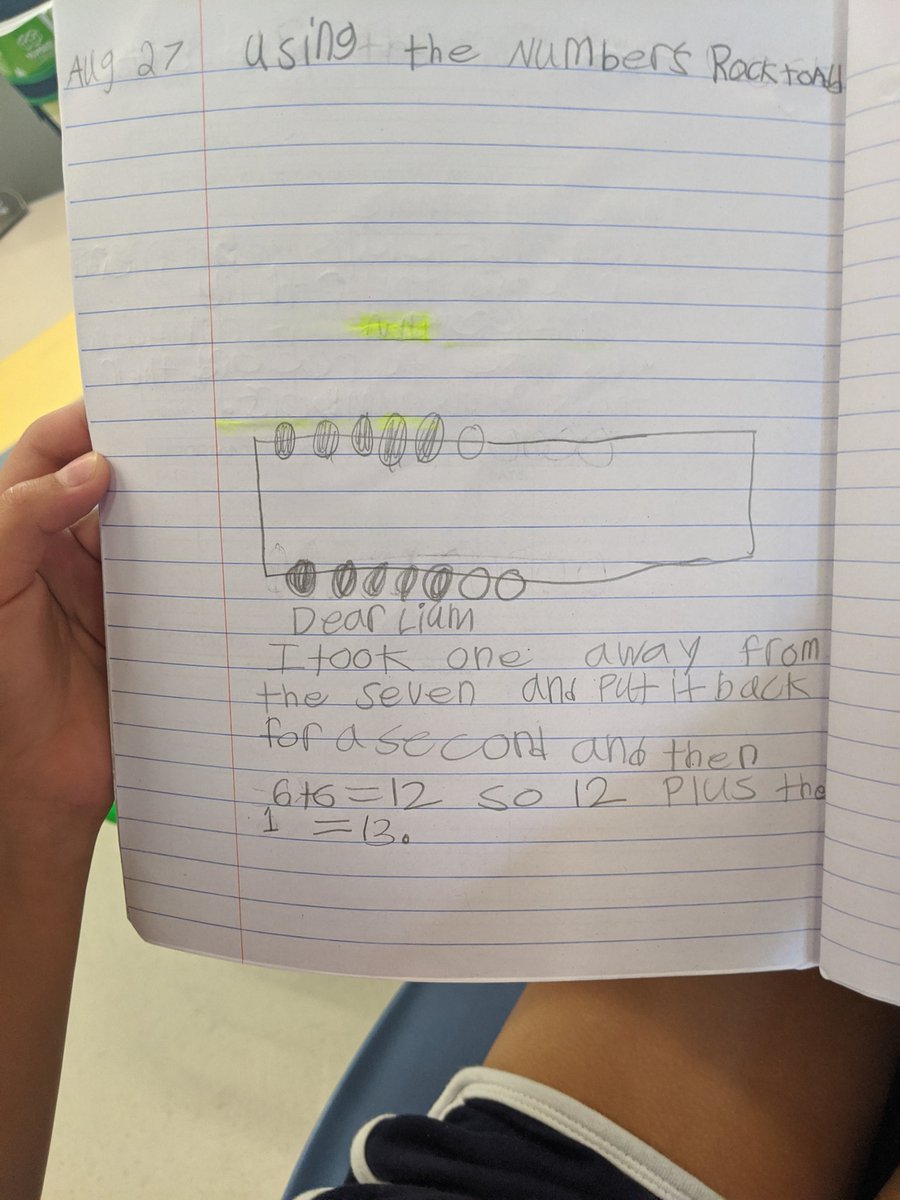 Aug 27 using the Numbers Rack to add
Dear Liam
I took one away from
the seven and put it back
for a second and then
6+6=12 so 12 plus the
1 =13.